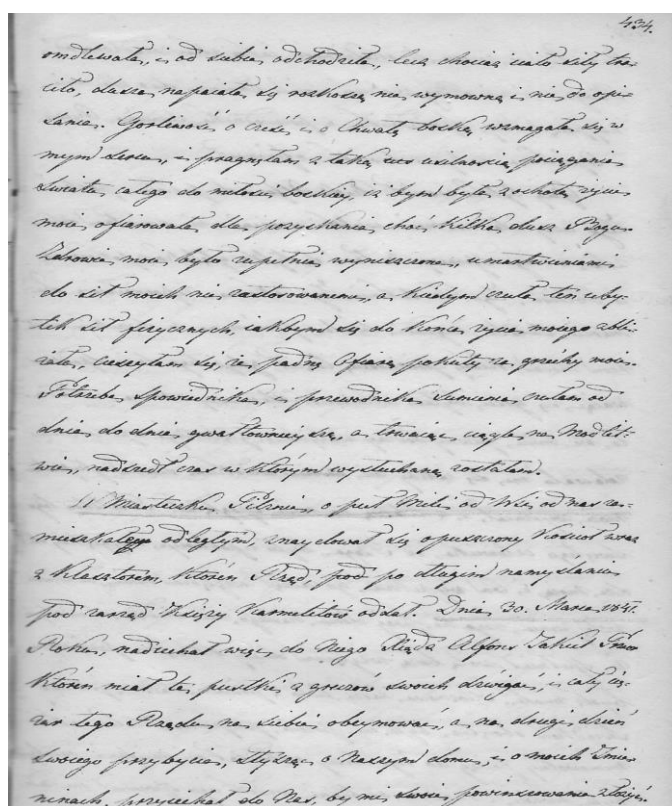 434.
omdlewała, i od siebie odchodziła, lecz chociaż ciało siły tra-
ciło, dusza napaiała się rozkoszą nie wymowną i nie do opi-
sania. Gorliwość o cześć i o Chwałę boską wzmagała się w
mym sercu, i pragnęłam z taką usilnością pociągania
świata całego do miłości boskiey, iż bym była z ochotą życie
moie ofiarowała dla pozyskania choć kilka dusz Bogu.
Zdrowie moie było zupełnie wyniszczone, umartwieniami
do sił moich nie zastosowanemi, a kiedym czuła ten uby-
tek sił fizycznych, iakbym się do końca życia moiego zbli-
żała, cieszyłam się, że padnę Ofiarą pokuty za grzechy moie.
Potrzeba Spowiednika, i przewodnika Sumienia czułam od
dnia do dnia gwałtownieyszą, a trwaiąc ciągle na Modlit-
wie, nadszedł czas w którym wysłuchaną zostałam.
W Miasteczku Pilznie, o puł Mili od Wsi od nas za-
mieszkałey odległym, znaydował się opuszczony Kościoł wraz
z Klasztorem, któren Rząd, po długim namyślaniu
pod zarząd Księży Karmelitów oddał. Dnia 30. Marca 1841.
Roku, nadiechał więc do Niego Xiądz Alfons
któren miał te pustki z gruzów swoich dzwigać, i cały cię-
żar tego Rządu na siebie obeymować, a na drugi dzień
swoiego przybycia, słysząc o Naszym domu, i o moich Imie-
ninach, przyiechał do Nas, by mi swoie powinszowanie złożyć.